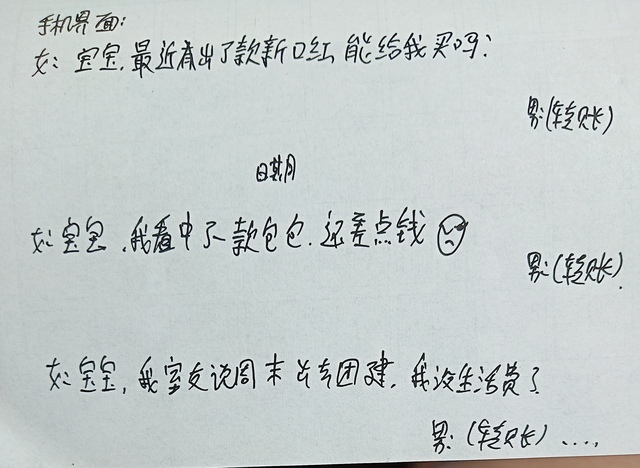 手机界面:
女: 宝宝,最近有出了款新口红 能给我买吗?
男:(转账)
日期
女: 宝宝,我看中了款包包.还差点钱
男:(转账)
女: 宝宝,我室友说周末出去团建,我没生活费了
男: (转账) .....